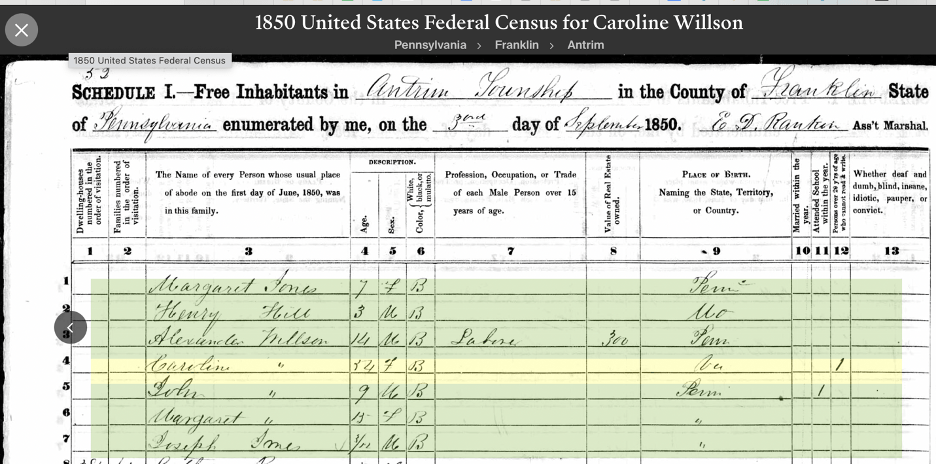 1850 United States Federal Census for Caroline Willson
Pennsylvania > Franklin > Antrim
1850 United States Federal Census
52
SCHEDULE I.—Free Inhabitants in Antrim Township in the County of Franklin State
of Pennsylvania enumerated by me, on the 3rd day of September 1850. E D. Rankin Ass't Marshal.
Dwelling-houses numbered in the order of visitation.
Families numbered in the order of visitation.
The Name of every Person whose usual place of abode on the first day of June, 1850, was in this family.
DESCRIPTION.
Age.
Sex.
Color, White, black, or mulatto.
Profession, Occupation, or Trade of each Male Person over 15 years of age.
Value of Real Estate owned.
PLACE OF BIRTH. Naming the State, Territory, or Country.
Married within the year.
Attended School within the year.
Persons over 20 y'rs of age who cannot read & write.
Whether deaf and dumb, blind, insane, idiotic, pauper, or convict.
1 2 3 4 5 6 7 8 9 10 11 12 13
1 Margaret Jones 7 F B
2 Henry Hill 3 M B
3 Alexander Willson M B 300
4 Caroline " F B Va 1
5 John " 9 M B Penn 1
6 Margaret " F B "
7 Joseph Jones M B "